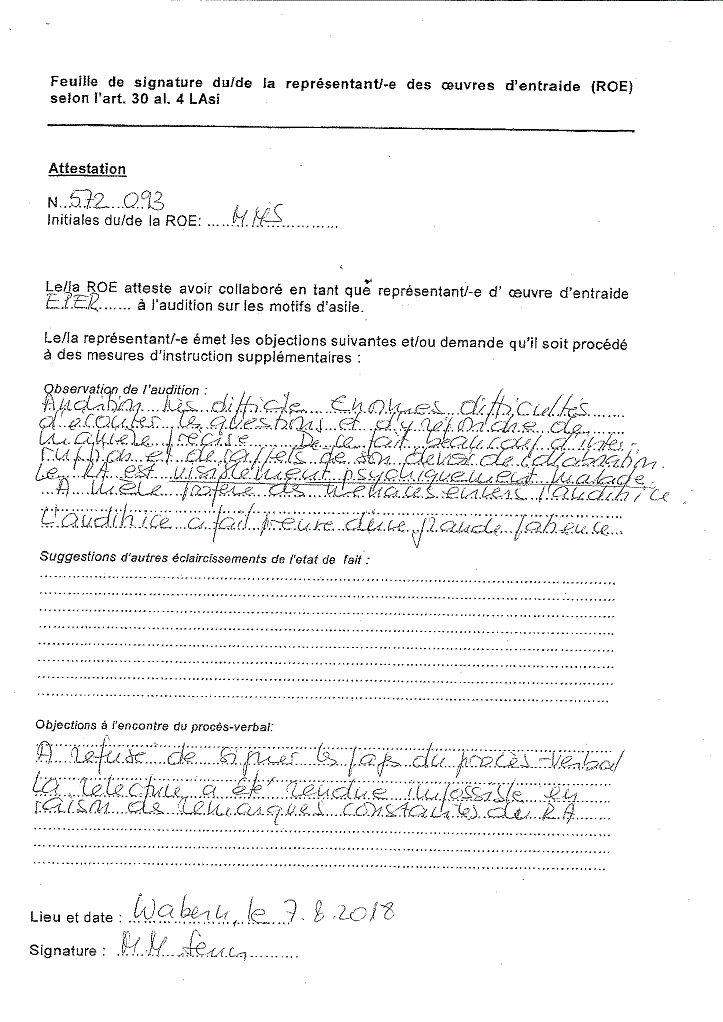 Feuille de signature du/de la représentant/-e des œuvres d'entraide (ROE)
selon l'art. 30 al. 4 LAsi
Attestation
N 572 093
Initiales du/de la ROE: MMS
Le/la ROE atteste avoir collaboré en tant que représentant/-e d' œuvre d'entraide
EPER à l'audition sur les motifs d'asile.
Le/la représentant/-e émet les objections suivantes et/ou demande qu'il soit procédé
à des mesures d'instruction supplémentaires :
Observation de l'audition :
Audition très difficile. Enormes difficultés
d'écouter les questions et d'y répondre de
manière précise. De ce fait beaucoup d'inter-
ruptions et de rappels de son devoir de collaboration.
Le RA est visiblement psychiquement malade.
A même proféré des menaces envers l'auditrice.
L'auditrice a fait preuve d'une grande patience.
Suggestions d'autres éclaircissements de l'etat de fait :
Objections à l'encontre du procès-verbal:
A refusé de signer les pages du procès-verbal
La relecture a été rendue impossible en
raison de remarques constantes du RA
Lieu et date : Wabern, le 7.8.2018
Signature : MM